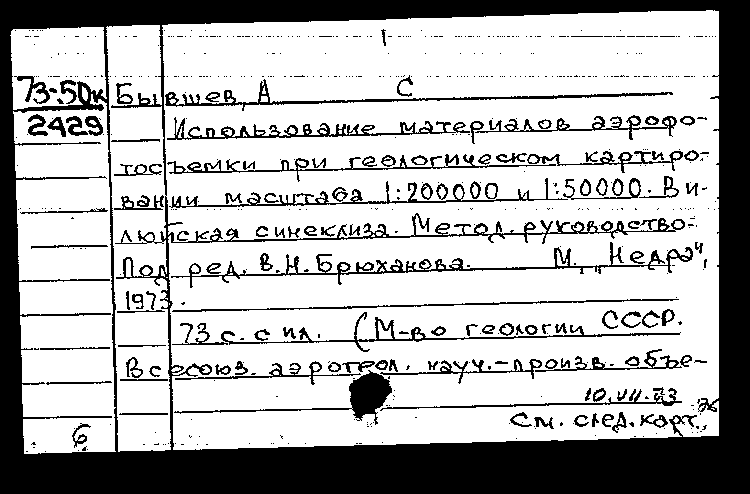 1
73-50к Бывшев, А С
2429 Использование материалов аэрофо-
тосъемки при геологическом картиро-
вании масштаба 1:200000 и 1:50000. Ви-
люйская синеклиза. Метод. руководство.
Под ред. В.Н. Брюханова. М., "Недра",
1973.
73 с. с ил. (М-во геологии СССР.
Всесоюз. аэрогеол. науч.-произв. объе-
10.VII.73
См. след. карт.
6